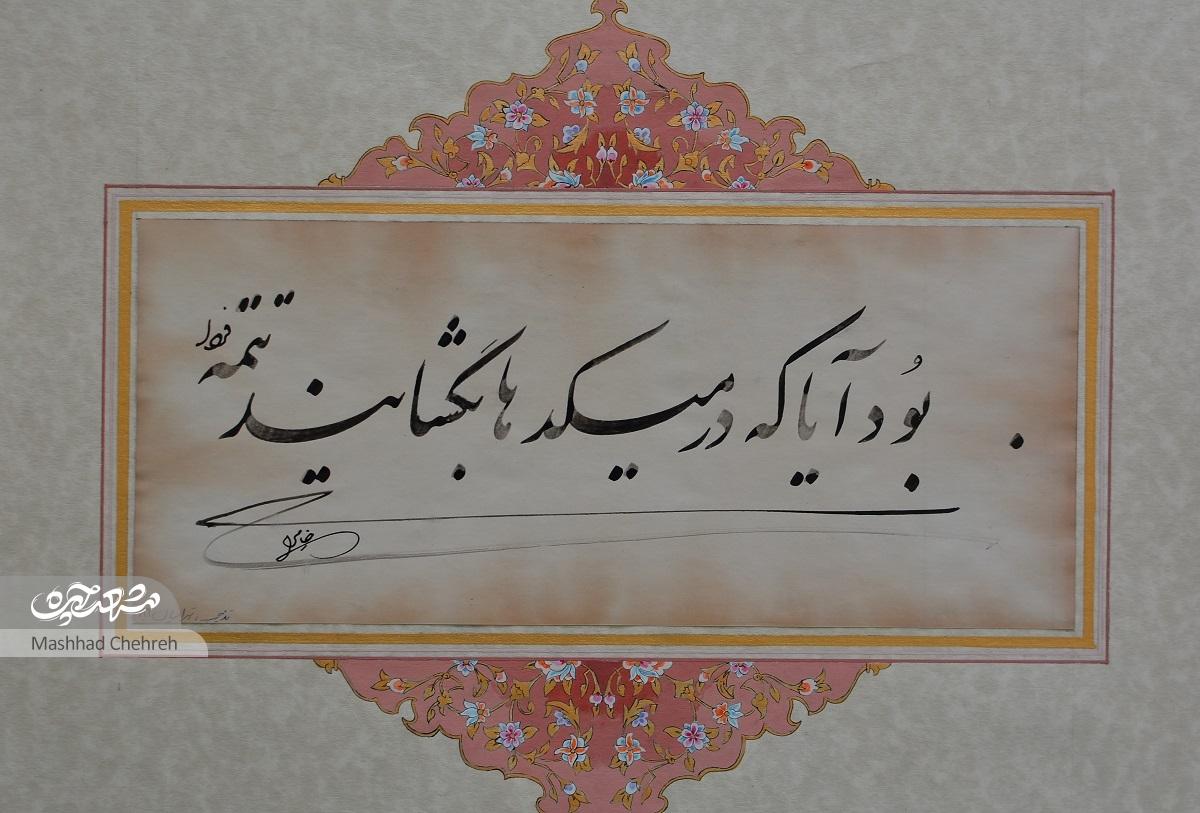 بُود آیا که در میکدها بگشایند تتمه
مشهد چهره
Mashhad Chehreh